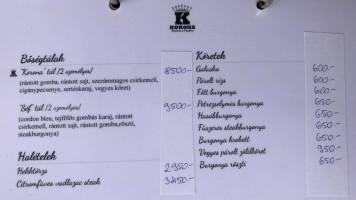 K
KORONA
Bőségtálak
"Korona" tál (2 személyes)
(rántott gomba, rántott sajt, szezámmagos csirkemell,
cigánypecsenye, sertéskaraj, vegyes köret)
8500.-
"Séf" tál (2 személyes)
(cordon bleu, tejfölös gombás karaj, rántott
csirkemell, rántott sajt, rántott gomba, rizibizi,
steakburgonya)
9500.-
Halételek
Hekktörzs 2950.-
Citromfüves vadlazac steak 3450.-
Köretek
Galuska 600.-
Párolt rizs 600.-
Főtt burgonya 600.-
Petrezselymes burgonya 650.-
Hasábburgonya 650.-
Fűszeres steakburgonya 650.-
Burgonya krokett 650.-
Vegyes párolt zöldköret 950.-
Burgonya röszti 650.-